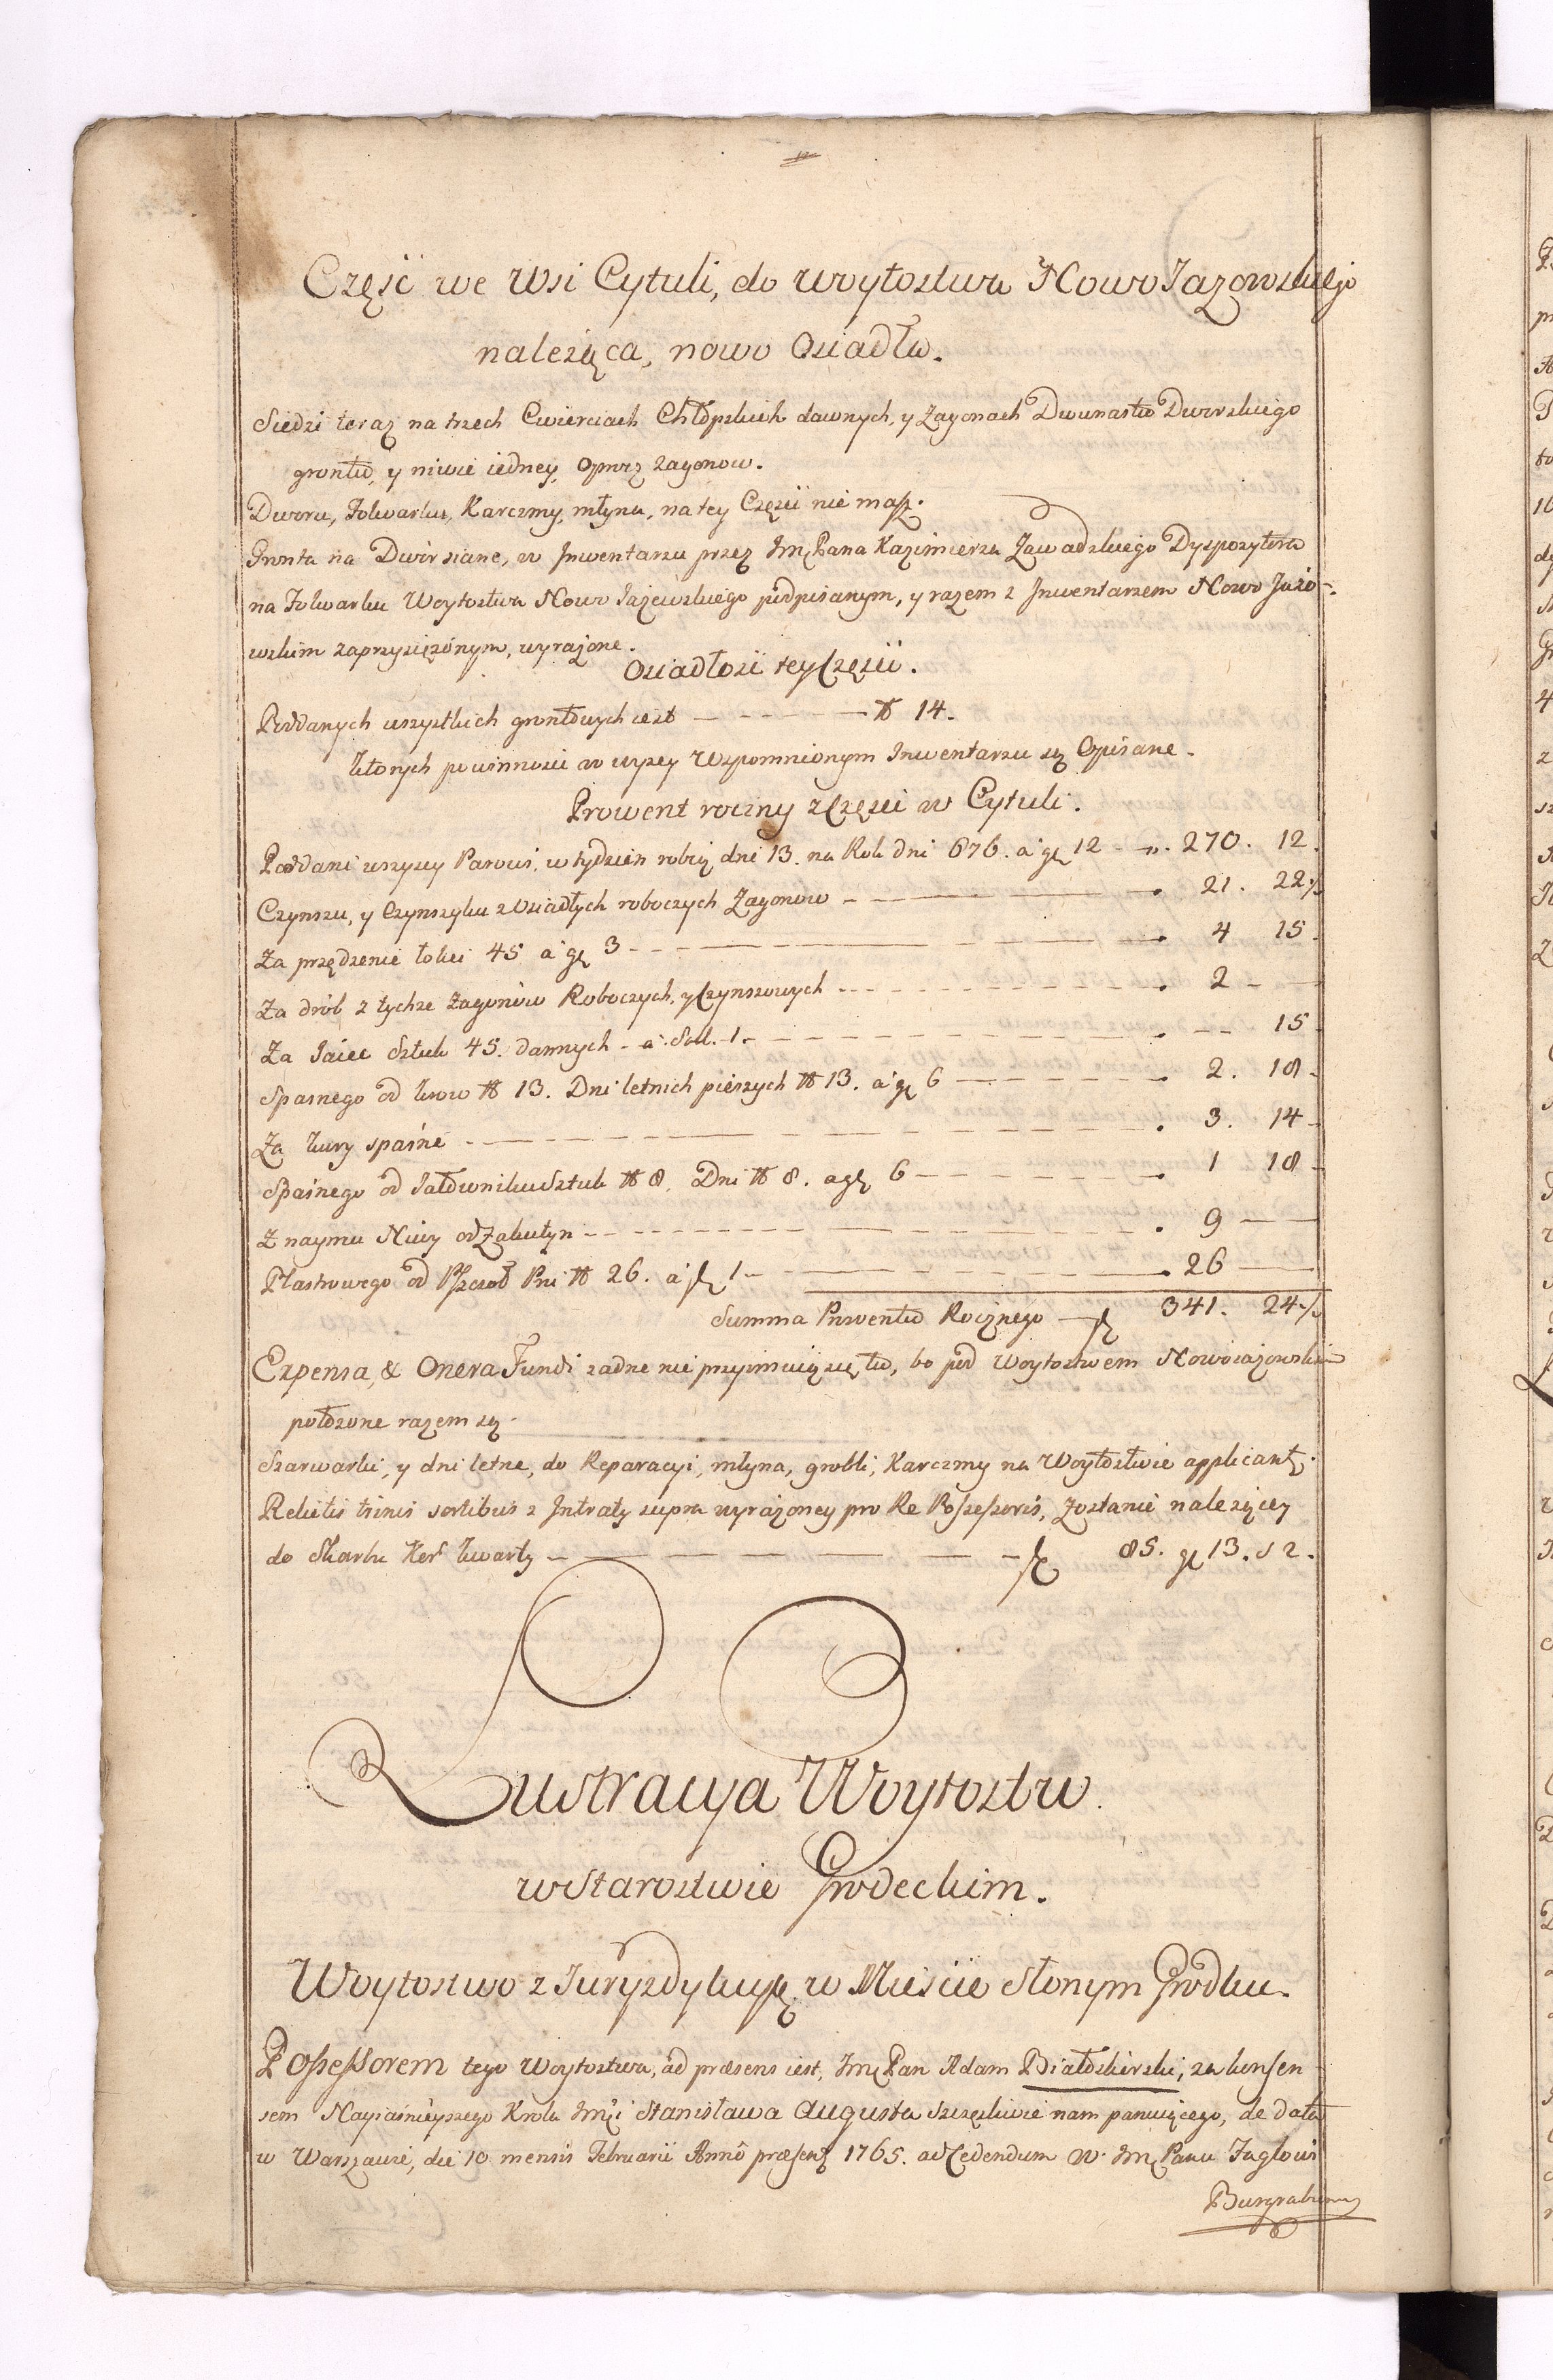 Część we Wsi Cytuli, do Woytostwa Nowo Jazowskiego
należąca, nowo Osiadła.
Siedzi teraz na trzech Cwierciach Chłopskich dawnych, y Zagonach Dwunastu Dworskiego
grontu, y niwie iedney, oprocz zagonow.
Dworu, Folwarku, Karczmy, młyna, na tey Części nie masz.
Gronta na Dwór siane, w Jnwentarzu przez Jmći Pana Kazimierza Zawadzkiego Dyspozytora
na Folwarku Woytostwa Nowo Jażowskiego podpisanym, y razem z Jnwentarzem Nowo Jażo-
wskim zaprzysiężonym, wyrażone.
Osiadłość tey Części.
Poddanych wszystkich grontowych iest № 14.
ktorych powinności w wyżey Wspomnionym Jnwentarzu są Opisane.
Prowent roczny z Części w Cytuli.
Poddani wszyscy Parowi, w tydzień robią dni 13. na Rok dni 676. a gr 12 270. 12.
Czynszu, y Czynszyku z Osiadłych roboczych Zagonow 21. 22½
Za przędzenie łokci 45 a gr 3 4 15
Za drób z tychże Zagonów Roboczych, y Czynszowych 2
Za Jaiec Sztuk 45. dannych a Soll. 1. 15
Spasnego od krow № 13. Dni letnich pieszych № 13. a gr 6 2. 18
Za kury spaśne 3. 14
Spaśnego od Jałowniku Sztuk № 8. Dni № 8. a gr 6 1 18
Z naymu Niwy od Zakutyn 9
Ptastowego od Pszczoł Pni № 26. a zł 1 26
Summa Prowentu Rocznego zł 341. 24½
Expensa, & Onera Fundi żadne nie przyimuią się tu, bo pod Woytostwem Nowoiażowskim
położone razem są.
Szarwarki, y dni letne, do Reparacyi, młyna, grobli, Karczmy na Woytostwie applicant.
Relictis trinis sortibus z Jntraty supra wyrażoney pro Re Possessoris, Zostanie należącey
do Skarbu Ker Kwarty zł 85. gr 13. s 2.
Lustracya Woytostw
w Starostwie Grodeckim.
Woytostwo z Juryzdykcyą w Mieście Słonym Grodku.
Possessorem tego Woytostwa, ad præsens iest, Jmć Pan Adam Białoskórski, za konsen-
sem Nayiaśnieyszego Krola Jmći Stanisława Augusta szczęśliwie nam panuiącego, de data
w Warszawie, die 10 mensis Februarii Anno præsenti 1765. ad Cedendum W. Jmć Panu Fuglowi
Burgrabiemu